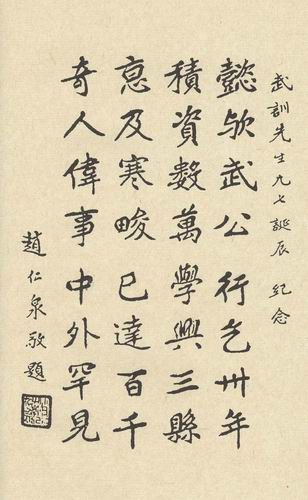 武訓先生九七誕辰 紀念
懿欤武公行乞卅年
積資數萬學興三縣
惠及寒畯已達百千
奇人偉事中外罕見
趙仁泉敬題